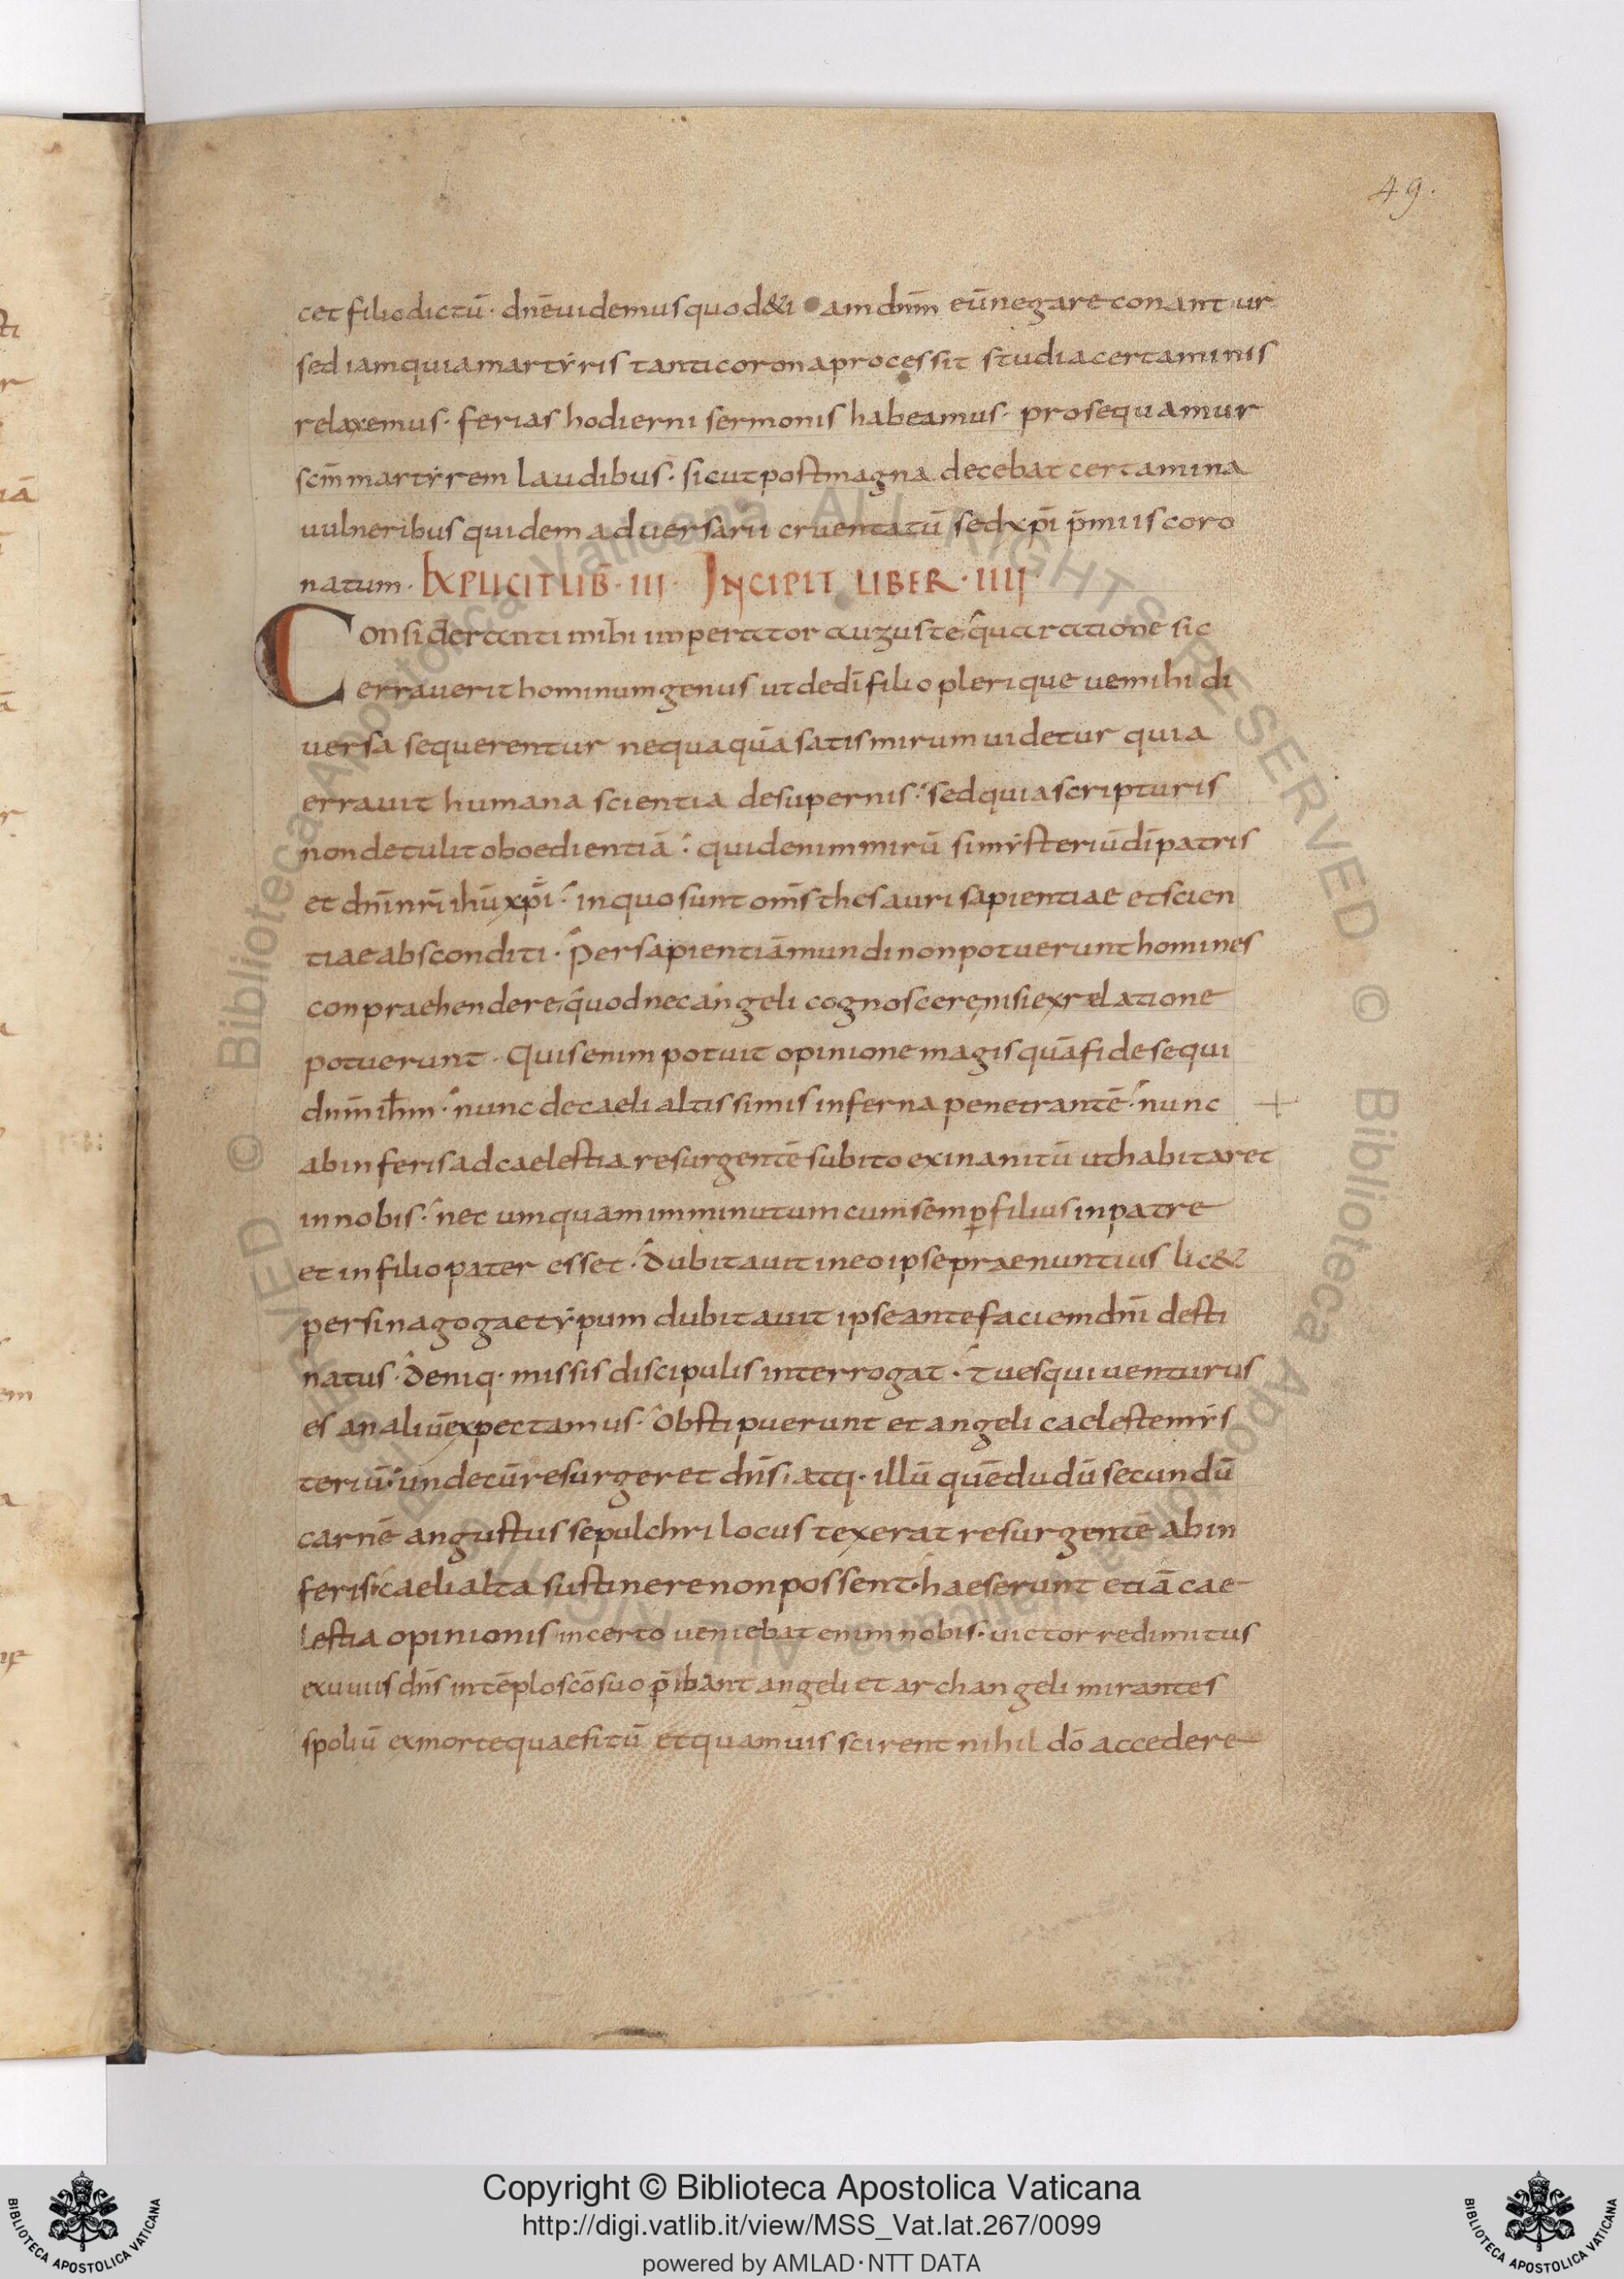 49.
cet filio dictū· dnē uidemus quod &i am dnm̄ eū negare conantur
sed iam quia martẏris tanti corona processit studia certaminis
relaxemus· ferias hodierni sermonis habeamus· prosequamur
scm̄ martẏrem laudibus· sicut post magna decebat certamina
uulneribus quidem aduersarii cruentatū sed xp̄i p̄miis coro
natum· EXPLICIT LIB̄· III· INCIPIT LIBER· IIII·
Consideranti mihi imperator auguste qua ratione sic
errauerit hominum genus ut de dī filio plerique uemihi di
uersa sequerentur nequaquā satis mirum uidetur quia
errauit humana scientia de supernis· sed quia scripturis
non detulit oboedientiā· quid enim mirū si mẏsteriū dī patris
et dnī nrī ihū xp̄i· in quo sunt omīs thesauri sapientiae et scien
tiae absconditi· Per sapientiā mundi non potuerunt homines
conpraehendere quod nec angeli cognoscere nisi ex relatione
potuerunt· Quis enim potuit opinione magis quā fide sequi
dnm̄ ihm̄· nunc de caeli altissimis inferna penetrantē· nunc
ab inferis ad caelestia resurgentē subito exinanitū ut habitaret
in nobis· nec umquam imminutum cum semp̱ filius in patre
et in filio pater esset· Dubitauit in eo ipse praenuntius lic&
per sinagogae tẏpum dubitauit ipse ante faciem dnī desti
natus· Deniq· missis discipulis interrogat· Tu es qui uenturus
es an aliū expectamus· Obstipuerunt et angeli caeleste mẏs
teriū· unde cū resurgeret dns̄, atq· illū quē dudū secundū
carnē angustus sepulchri locus texerat resurgentē ab in
feris· caeli alta sustinere non possent· haeserunt etiā cae
lestia opinionis incerto ueniebat enim nobis· uictor redimitus
exuuiis dns̄ in tēplo scō suo p̄ibant angeli et archangeli mirantes
spoliū ex morte quaesitū et quamuis scirent nihil dō accedere
Copyright © Biblioteca Apostolica Vaticana
http://digi.vatlib.it/view/MSS_Vat.lat.267/0099
powered by AMLAD · NTT DATA
BIBLIOTECA APOSTOLICA VATICANA
BIBLIOTECA APOSTOLICA VATICANA